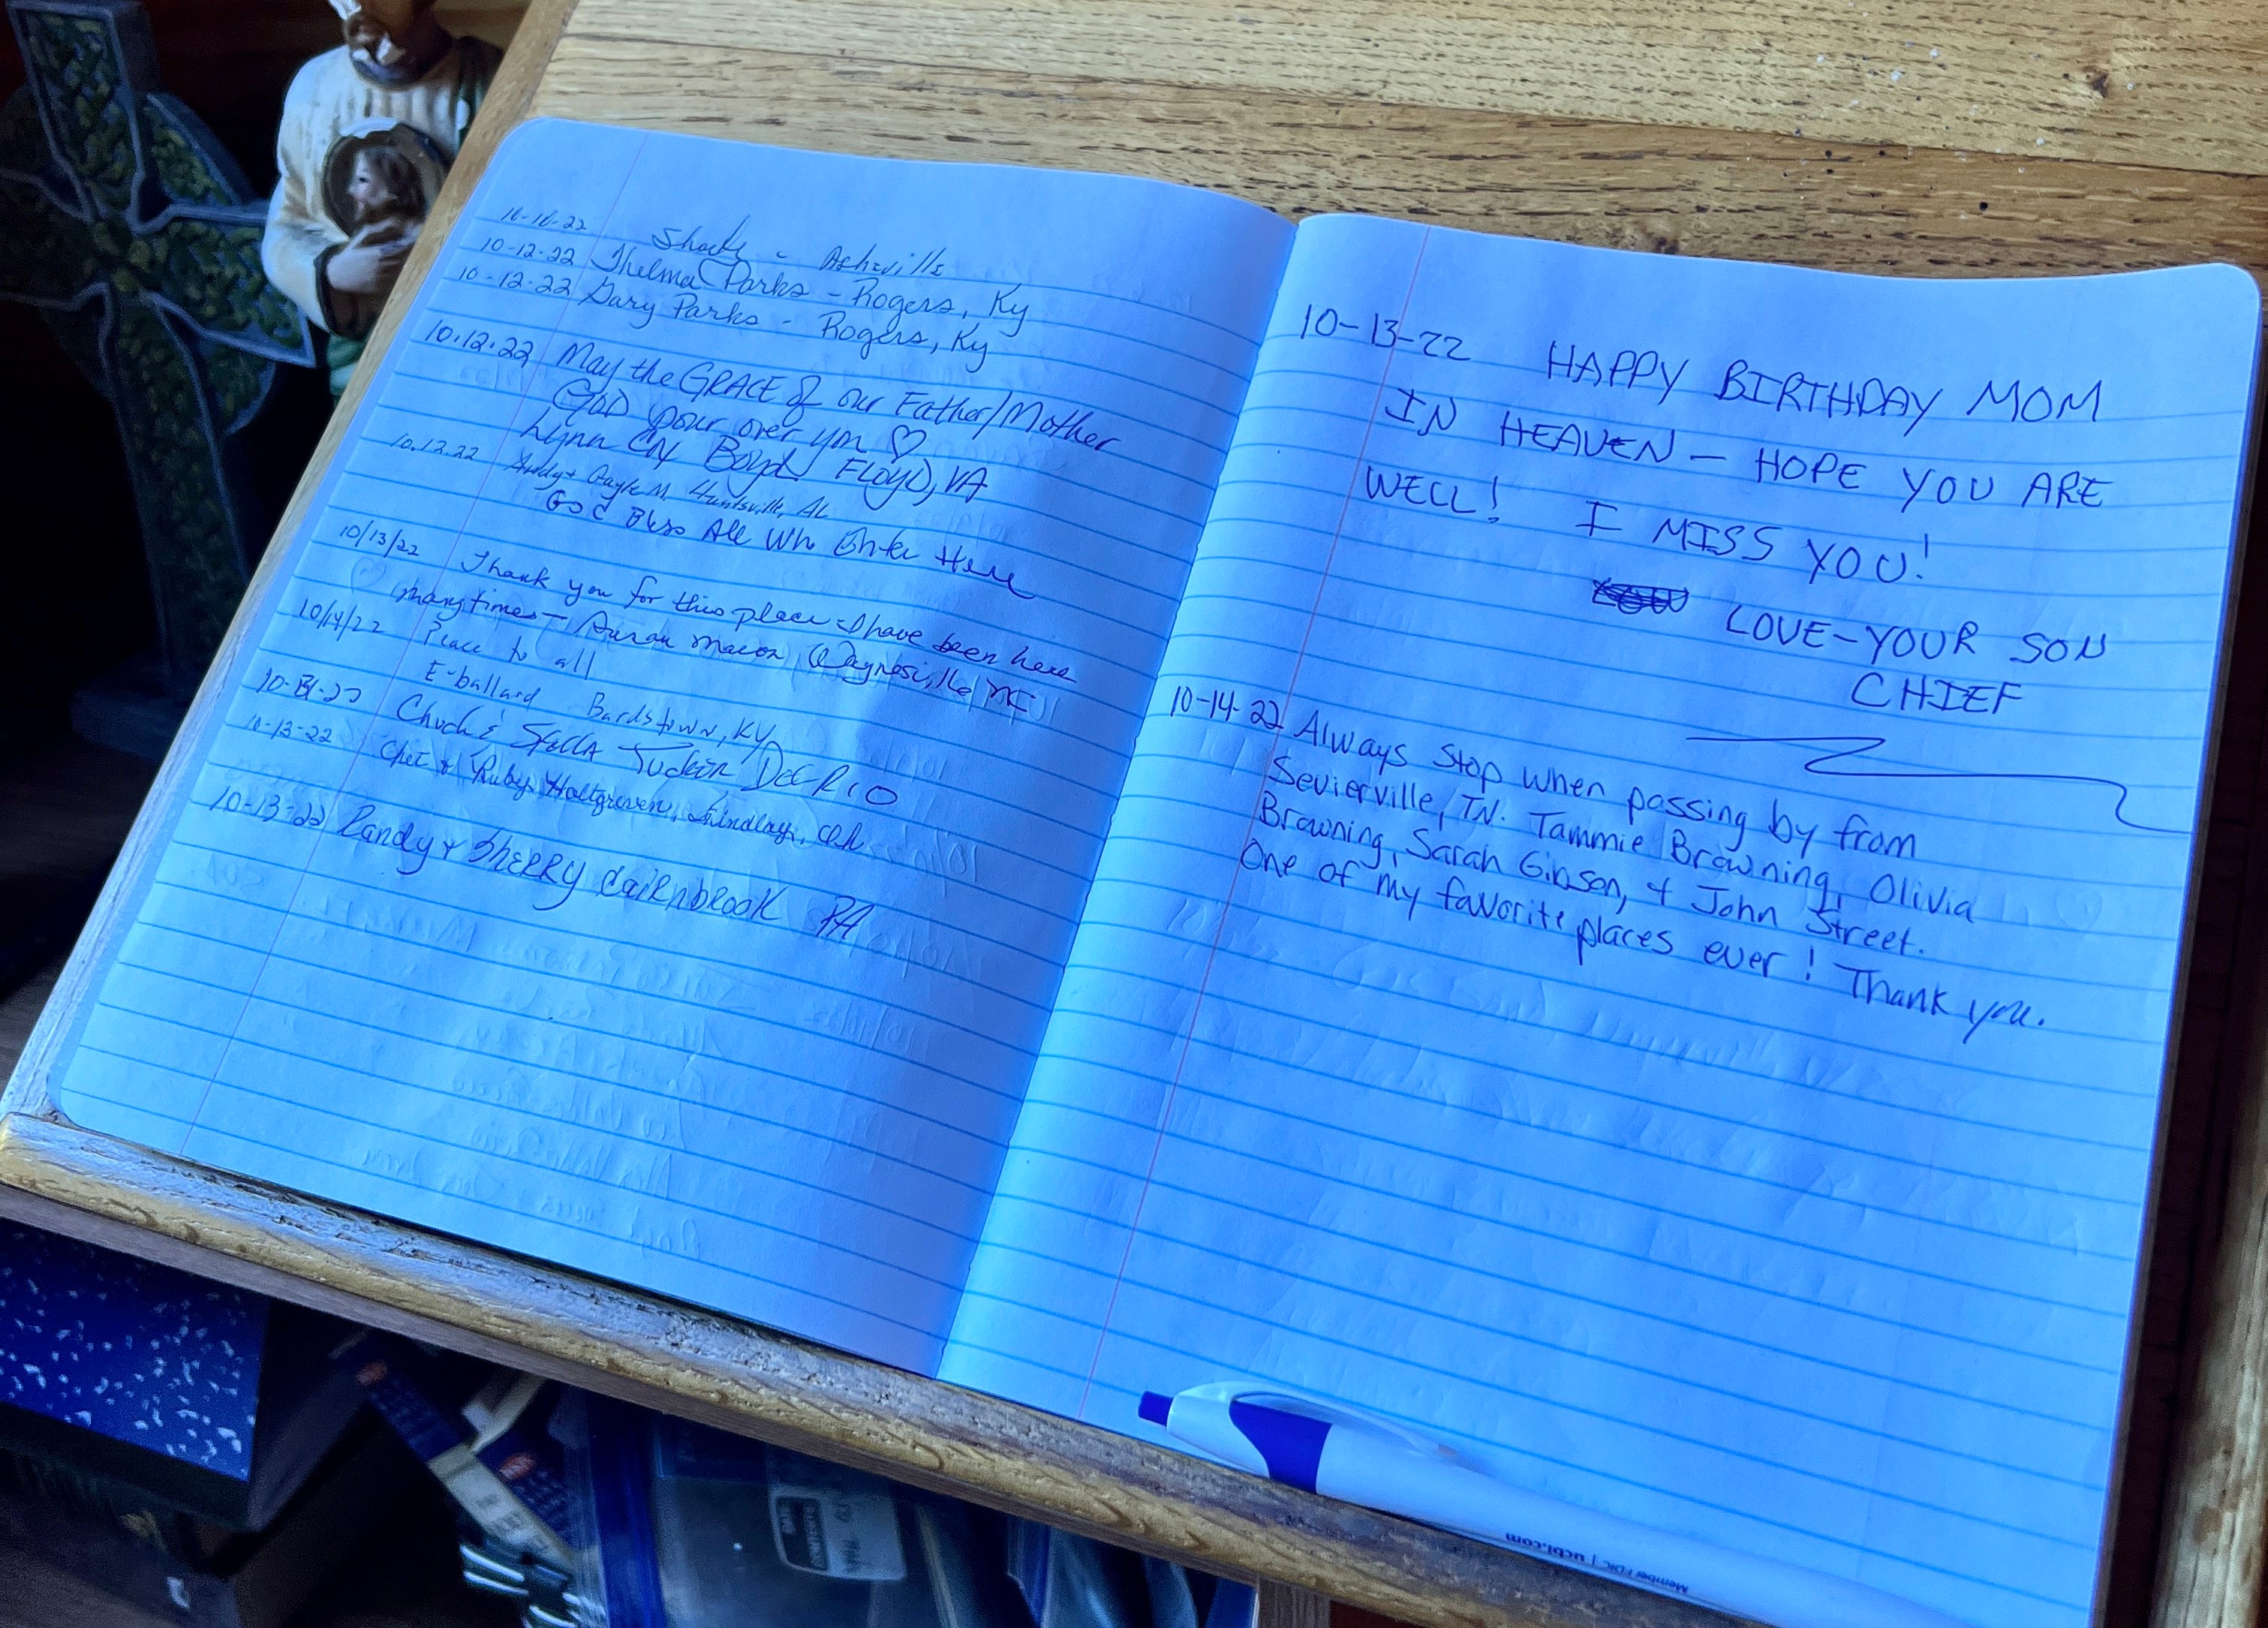 10-12-22 Thelma Parks - Rogers, Ky
10-12-22 Gary Parks - Rogers, Ky
10.12.22 May the GRACE of our Father/Mother
GOD pour over you ♡
Lynn Boyd FLOYD, VA
10.12.22 Gayle M. Huntsville, AL
God Bless All Who Enter Here
10/13/22 Thank you for this place I have been here
♡ many times - Macon, NC
10/14/22 Peace to all
E-ballard Bardstown, KY
Chuck & STELLA Tucker DEL RIO
10-13-22 Chet & Ruby Holtgreven, Findlay, Oh
10-13-22 Randy & SHERRY CairnbROOK PA
10-13-22 HAPPY BIRTHDAY MOM
IN HEAVEN - HOPE YOU ARE
WELL! I MISS YOU!
LOVE-YOUR SON
CHIEF
10-14-22 Always stop when passing by from
Sevierville, TN. Tammie Browning, Olivia
Browning, Sarah Gibson, & John Street.
One of my favorite places ever! Thank you.
Member FDIC | ucbi.com